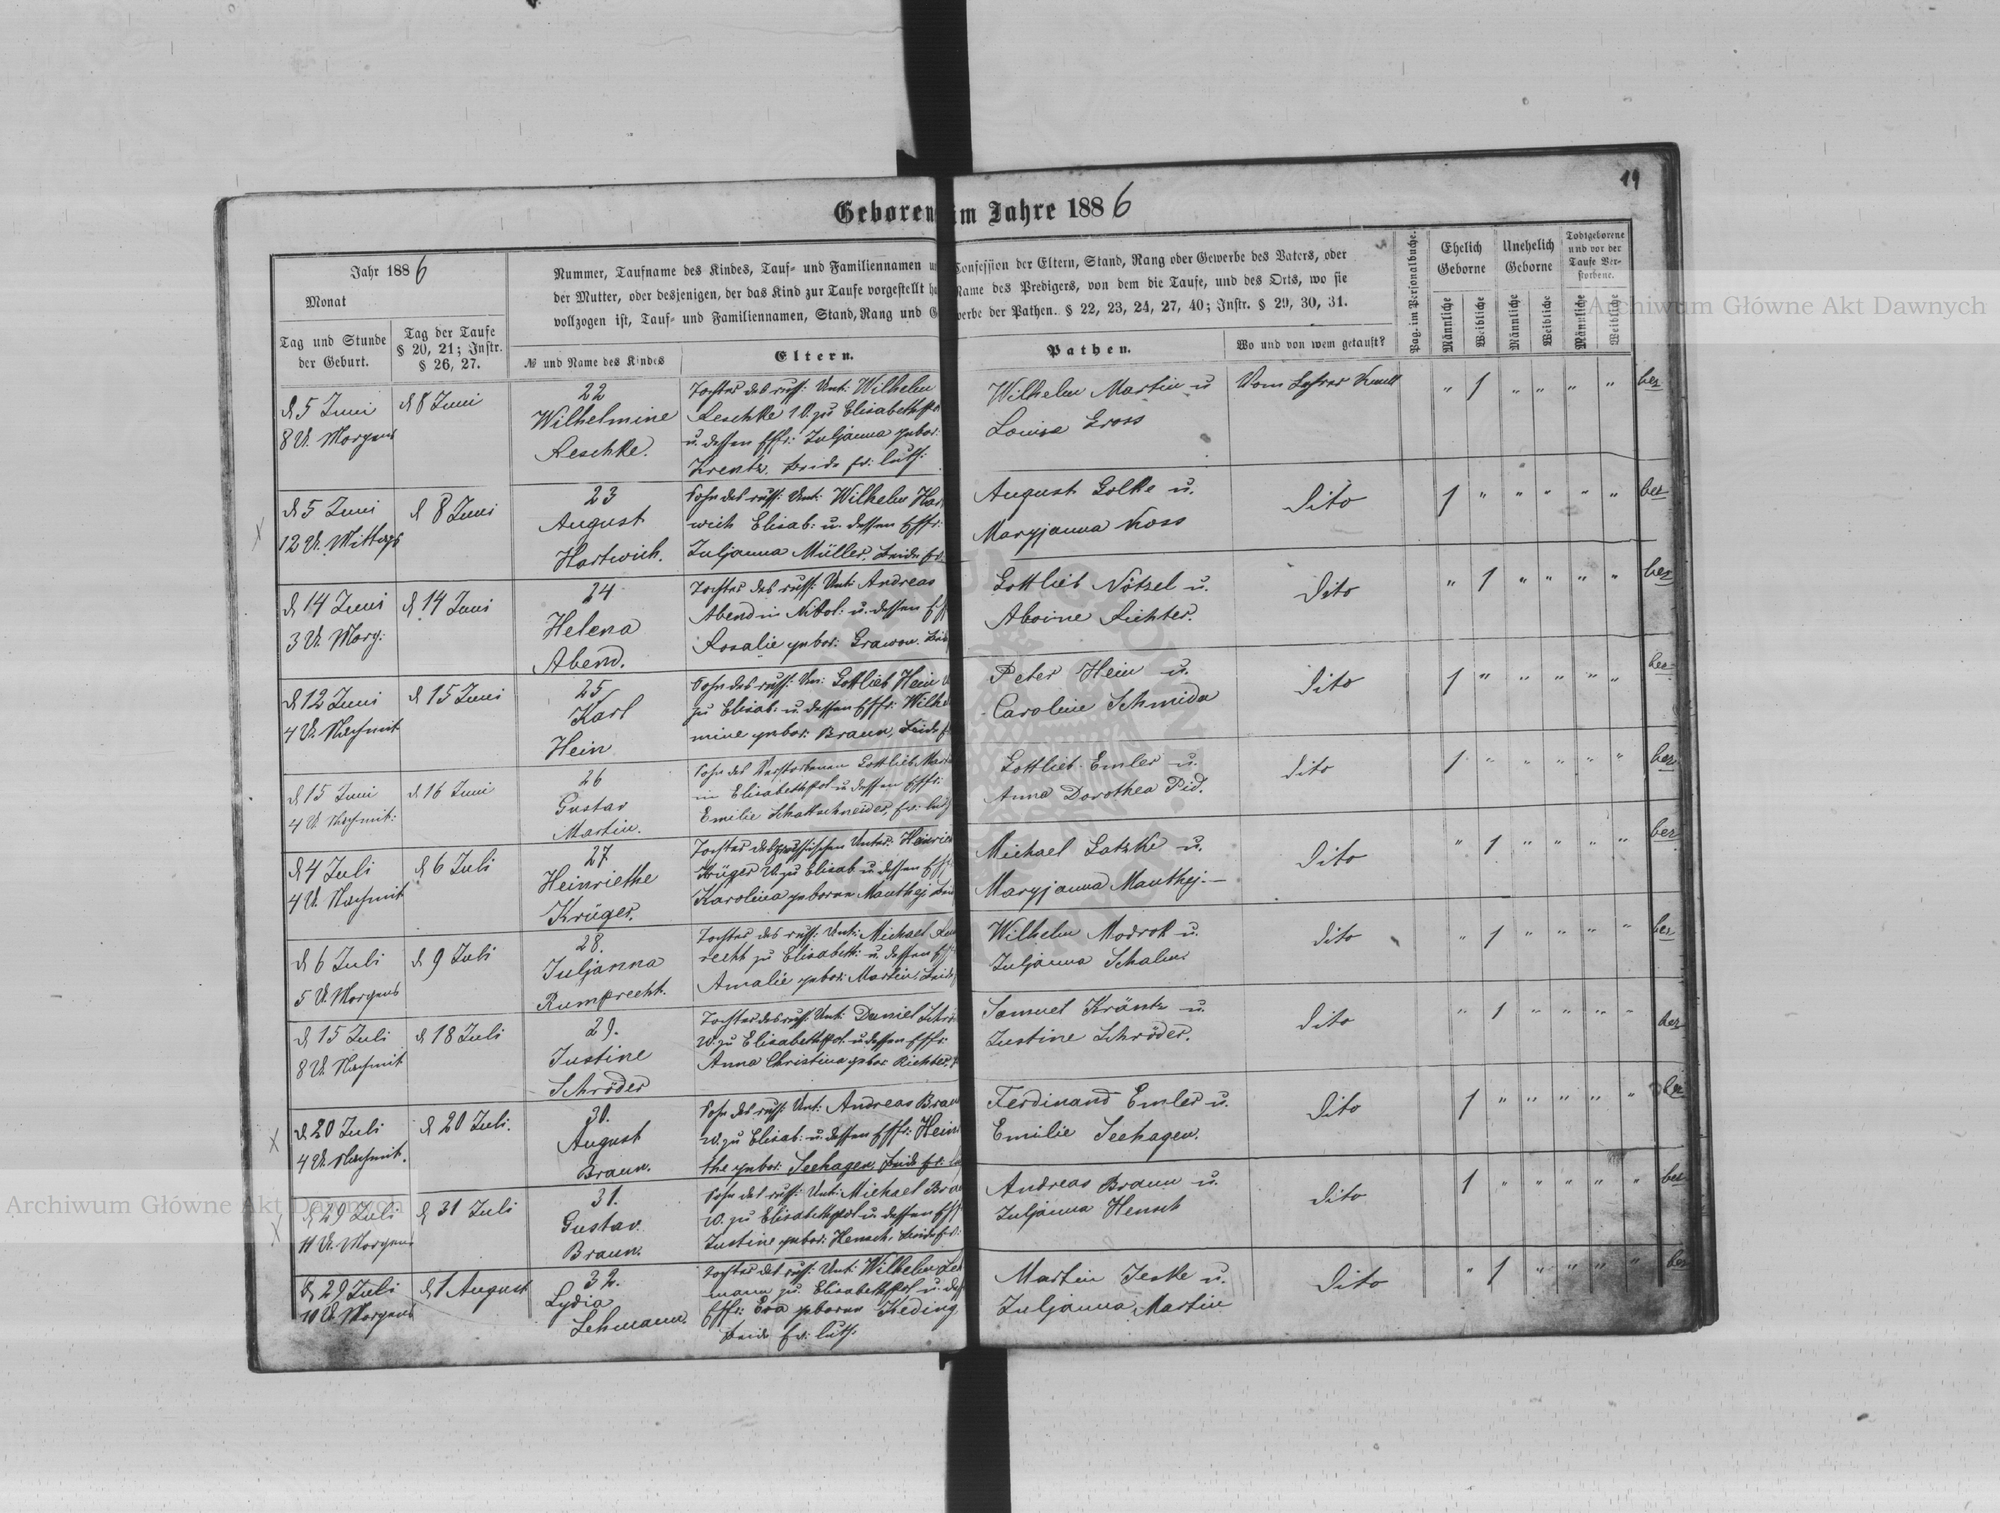 19
Geboren im Jahre 1886
Jahr 1886
Monat
Tag und Stunde
der Geburt.
Tag der Taufe
§ 20, 21; Instr.
§ 26, 27.
Nummer, Taufname des Kindes, Tauf- und Familiennamen u Confession der Eltern, Stand, Rang oder Gewerbe des Vaters, oder
der Mutter, oder desjenigen, der das Kind zur Taufe vorgestellt ha Name des Predigers, von dem die Taufe, und des Orts, wo sie
vollzogen ist, Tauf- und Familiennamen, Stand, Rang und G werbe der Pathen. § 22, 23, 24, 27, 40; Instr. § 29, 30, 31.
№ und Name des Kindes
Eltern.
Pathen.
Wo und von wem getauft?
Pag. im Personalbuche.
Ehelich
Geborne
Unehelich
Geborne
Todtgeborene
und vor der
Taufe Ver-
storbene.
Männliche
Weibliche
Männliche
Weibliche
Männliche
Weibliche
d 5 Juni
8 U. Morgens
d 8 Juni
22
Wilhelmine
Reschke.
Tochter des russ: Unt: Wilhelm
Reschke W. zu Elisabethpol
u. dessen Ehfr: Juljanna gebor:
Krentz. beide ev: luth:
Wilhelm Martin u
Louise Gross
Vom Lehrer
" 1 " " " "
d 5 Juni
12 U. Mittags
d 8 Juni
23
August
Hartwich.
Sohn des russ: Unt: Wilhelm Hart
wich Elisab: u. dessen Ehfr:
Juljanna Müller. beide ev:
August Golke u.
Maryjanna Koss
Dito
1 " " " " "
d 14 Juni
3 U. Morg:
d 14 Juni
24
Helena
Abend.
Tochter des russ: Unt: Andreas
Abend in Nikol: u. dessen Ehf
Rosalie gebor: Grawon. beid
Gottlieb Nötzel u.
Richter.
Dito
" 1 " " " "
d 12 Juni
4 U. Nachmit
d 15 Juni
25
Karl
Hein
Sohn des russ: Un: Gottlieb Hein
zu Elisab: u. dessen Ehfr: Wilhel
mine gebor: Braun, beide
Peter Hein u.
Caroline Schmida
Dito
1 " " " " "
d 15 Juni
4 U. Nachmit:
d 16 Juni
26
Gustav
Martin.
Sohn des Verstorbenen Gottlieb Mart
in Elisabethpol u dessen Ehfr:
Emilie Schattschneider, ev: luth
Gottlieb Emler u.
Anna Dorothea Pid.
Dito
1 " " " " "
d 4 Juli
4 U. Nachmit
d 6 Juli
27
Heinriethe
Krüger.
Tochter des Unter: Heinrich
Krüger W. zu Elisab u dessen Ehf
Karolina geboren Manthej beid
Michael Latzke u.
Maryjanna Manthej.
Dito
" 1 " " " "
d 6 Juli
5 U. Morgens
d 9 Juli
28.
Juljanna
Rumprecht.
Tochter des russ: Unt: Michael Rum
recht zu Elisabeth: u. dessen Ehf
Amalie gebor: Martin, beide
Wilhelm Modrok u.
Juljanna
Dito
" 1 " " " "
d 15 Juli
8 U. Nachmit
d 18 Juli
29.
Justine
Schröder
Tochter des russ: Unt: Daniel Schrö
W. zu Elisabethpol. u dessen Ehfr:
Anna Christina gebor Richter,
Samuel Kräntz u.
Justine Schröder.
Dito
" 1 " " " "
d 20 Juli
4 U. Nachmit.
d 20 Juli.
30.
August
Braun.
Sohn des russ: Unt: Andreas Brau
W. zu Elisab: u. dessen Ehfr: Hein
the gebor: Seehagen beide ev:
Ferdinand Emler u.
Emilie Seehagen.
Dito
1 " " " " "
d 29 Juli
11 U. Morgens
d 31 Juli
31.
Gustav
Braun.
Sohn des russ: Unt: Michael Bra
W. zu Elisabethpol u dessen Ehf
Justine gebor: Hensch. beide ev:
Andreas Braun u.
Juljanna Hensch
Dito
1 " " " " "
d 29 Juli
10 U. Morgens
d 1 August
32.
Lydia
Lehmann.
Tochter des russ: Unt: Wilhelm Leh
mann zu Elisabethpol u. des
Ehfr: Eva geboren Keding
beide ev: luth.
Martin Jeske u.
Juljanna Martin
Dito
" 1 " " " "
Archiwum Główne Akt Dawnych
Archiwum Główne Akt Dawnych